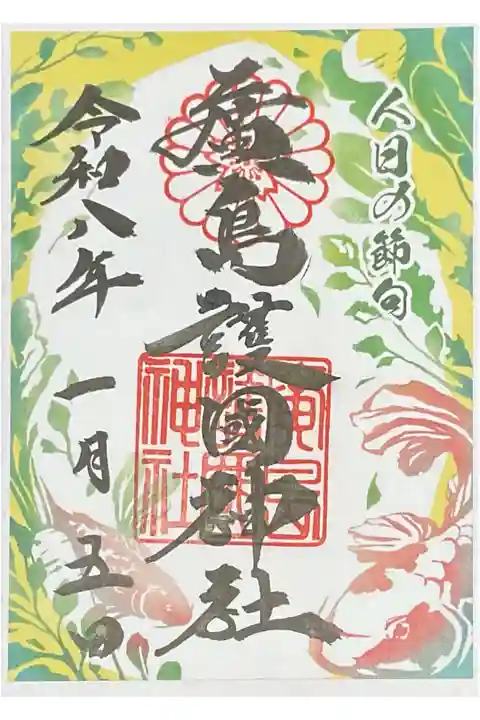 人日の節句
廣島護國神社
令和八年 一月 五日
廣島
護國
神社